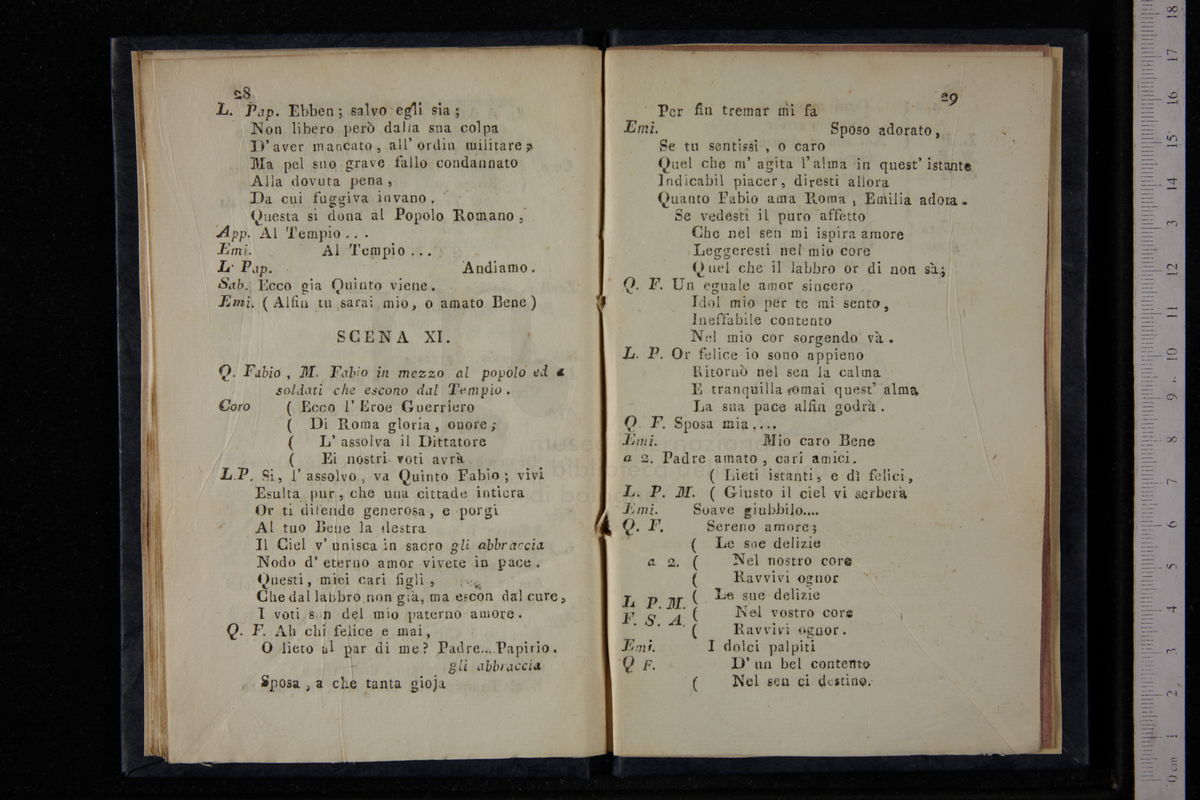 28
L. Pap. Ebben; salvo egli sia;
Non libero però dalla sua colpa
D'aver mancato, all'ordin militare,
Ma pel suo grave fallo condannato
Alla dovuta pena,
Da cui fuggiva invano.
Questa si dona al Popolo Romano,
App. Al Tempio...
Emi. Al Tempio...
L. Pap. Andiamo.
Sab. Ecco gia Quinto viene.
Emi. (Alfin tu sarai mio, o amato Bene)
SCENA XI.
Q. Fabio, M. Fabio in mezzo al popolo ed a
soldati che escono dal Tempio.
Coro ( Ecco l'Eroe Guerriero
( Di Roma gloria, onore;
( L'assolva il Dittatore
( Ei nostri voti avrà
L.P. Si, l'assolvo, va Quinto Fabio; vivi
Esulta pur, che una cittade intiera
Or ti difende generosa, e porgi
Al tuo Bene la destra
Il Ciel v'unisca in sacro gli abbraccia
Nodo d'eterno amor vivete in pace.
Questi, miei cari figli,
Che dal labbro non già, ma escon dal cure,
I voti son del mio paterno amore.
Q. F. Ah chi felice e mai,
O lieto al par di me? Padre....Papirio.
gli abbraccia
Sposa, a che tanta gioja
29
Per fin tremar mi fa
Emi. Sposo adorato,
Se tu sentissi, o caro
Quel che m'agita l'alma in quest'istante
Indicabil piacer, diresti allora
Quanto Fabio ama Roma, Emilia adora.
Se vedesti il puro affetto
Che nel sen mi ispira amore
Leggeresti nel mio core
Quel che il labbro or di non sà;
Q. F. Un eguale amor sincero
Idol mio per te mi sento,
Ineffabile contento
Nel mio cor sorgendo và.
L. P. Or felice io sono appieno
Ritornò nel sen la calma
E tranquilla omai quest'alma
La sua pace alfin godrà.
Q F. Sposa mia....
Emi. Mio caro Bene
a 2. Padre amato, cari amici.
( Lieti istanti, e dì felici,
L. P. M. ( Giusto il ciel vi serberà
Emi. Soave giubbilo....
Q. F. Sereno amore;
( Le sue delizie
a 2. ( Nel nostro core
( Ravvivi ognor
L P. M. ( Le sue delizie
F. S. A. ( Nel vostro core
( Ravvivi ognor.
Emi. I dolci palpiti
Q F. D'un bel contento
( Nel sen ci destino.